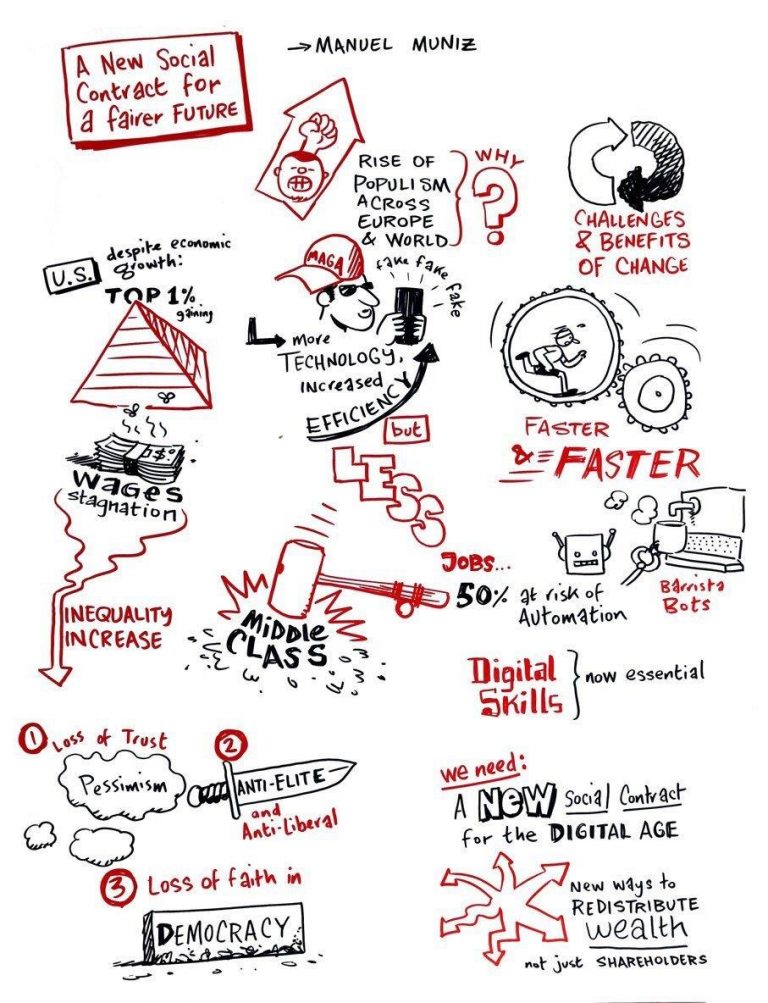 A New Social
Contract for
a fairer FUTURE
→ MANUEL MUNIZ
RISE OF
POPULISM
ACROSS
EUROPE
& WORLD
WHY
?
CHALLENGES
& BENEFITS
OF CHANGE
U.S.
despite economic
growth:
TOP 1%
gaining
MAGA
fake fake fake
more
TECHNOLOGY,
increased
EFFICIENCY
but
LESS
JOBS...
FASTER
& FASTER
$
WAGES
stagnation
INEQUALITY
INCREASE
MiDDLE
CLASS
50% at risk of
Automation
Barrista
Bots
Digital
Skills
now essential
1 Loss of Trust
Pessimism
2
ANTI-ELITE
and
Anti-Liberal
3 Loss of faith in
DEMOCRACY
we need:
A NEW Social Contract
for the DIGITAL AGE
New ways to
REDISTRIBUTE
wealth
not just SHAREHOLDERS